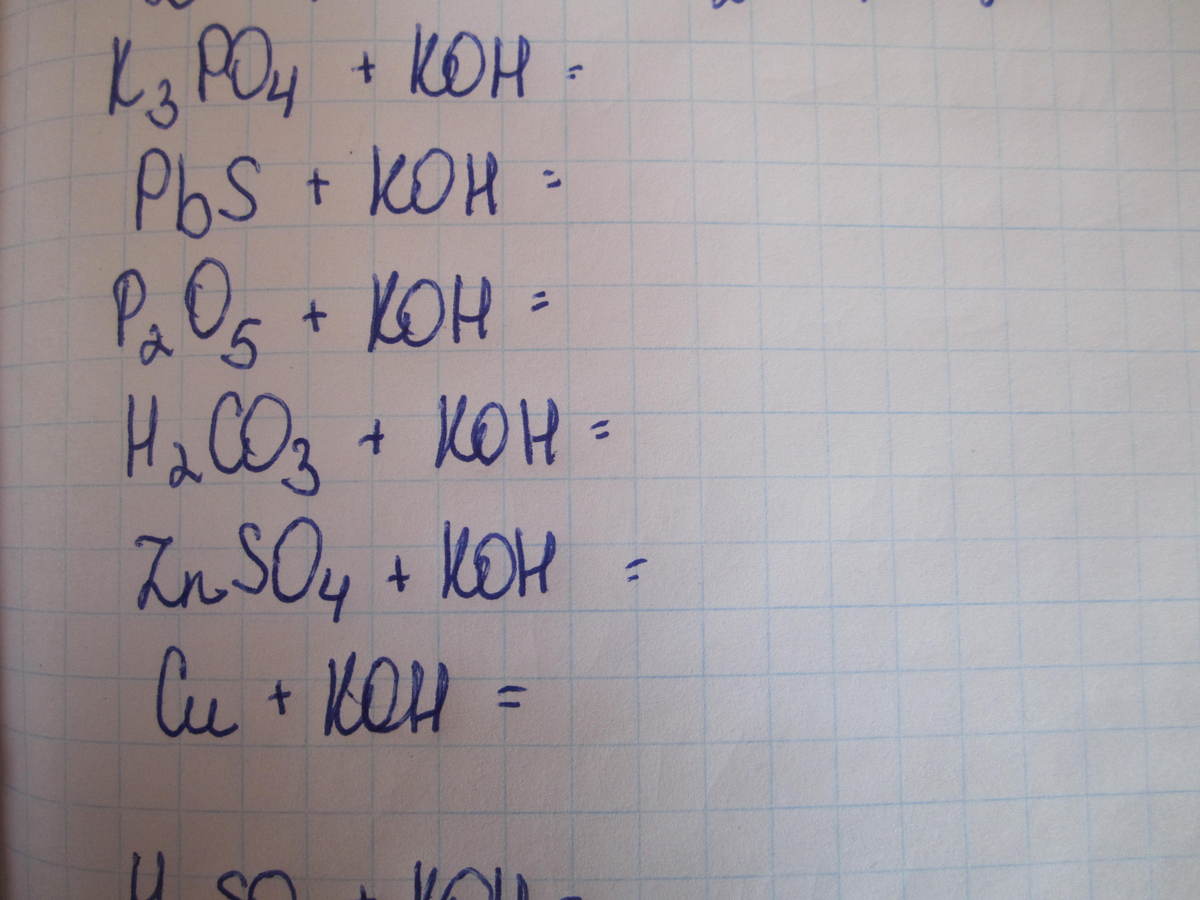 K₃PO₄ + KOH =
PbS + KOH =
P₂O₅ + KOH =
H₂CO₃ + KOH =
ZnSO₄ + KOH =
Cu + KOH =
+ KOH =